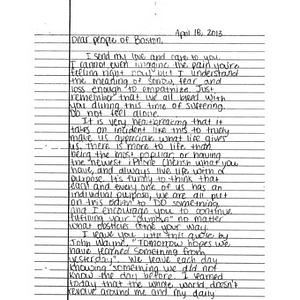 April 18, 2013
Dear people of Boston,
I send my love and care to you.
I cannot even imagine the pain you're
feeling right now, but I understand
the meaning of sorrow, fear, and
loss enough to empathize. Just
remember that we all bleed with
you during this time of suffering.
Do not feel alone.
It is very heartbreaking that it
takes an incident like this to truly
make us appreciate what life gives
us. There is more to life than
being the most popular, or having
the newest iPhone. Cherish what you
have, and always live life with a
purpose. It's funny to think that
each and every one of us has an
individual purpose, we are all put
on this earth to DO something,
and I encourage you to continue
fulfilling your "purpose" no matter
what obstacles come your way.
I leave you with this quote by
John Wayne, "Tomorrow hopes we
have learned something from
yesterday". We leave each day
knowing something we did not
know the day before. I learned
today that the whole world doesn't
revolve around me and my daily